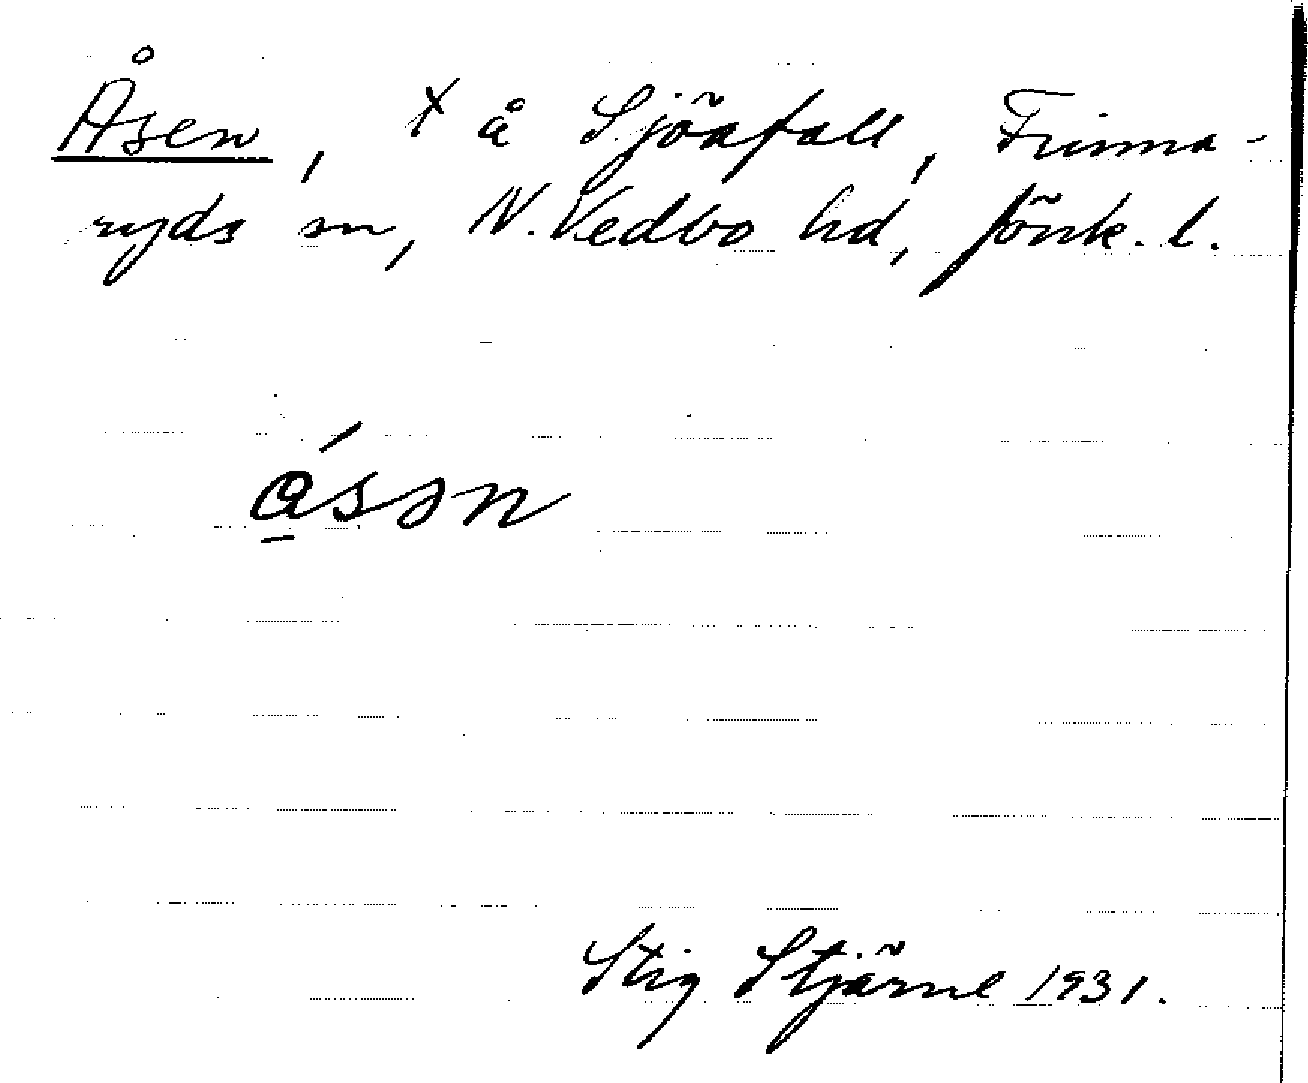 Åsen, x å Sjöafall, Frinna-
ryds sn, N. Vedbo hd, Jönk. l.
åsən
Stig Stjärne 1931.